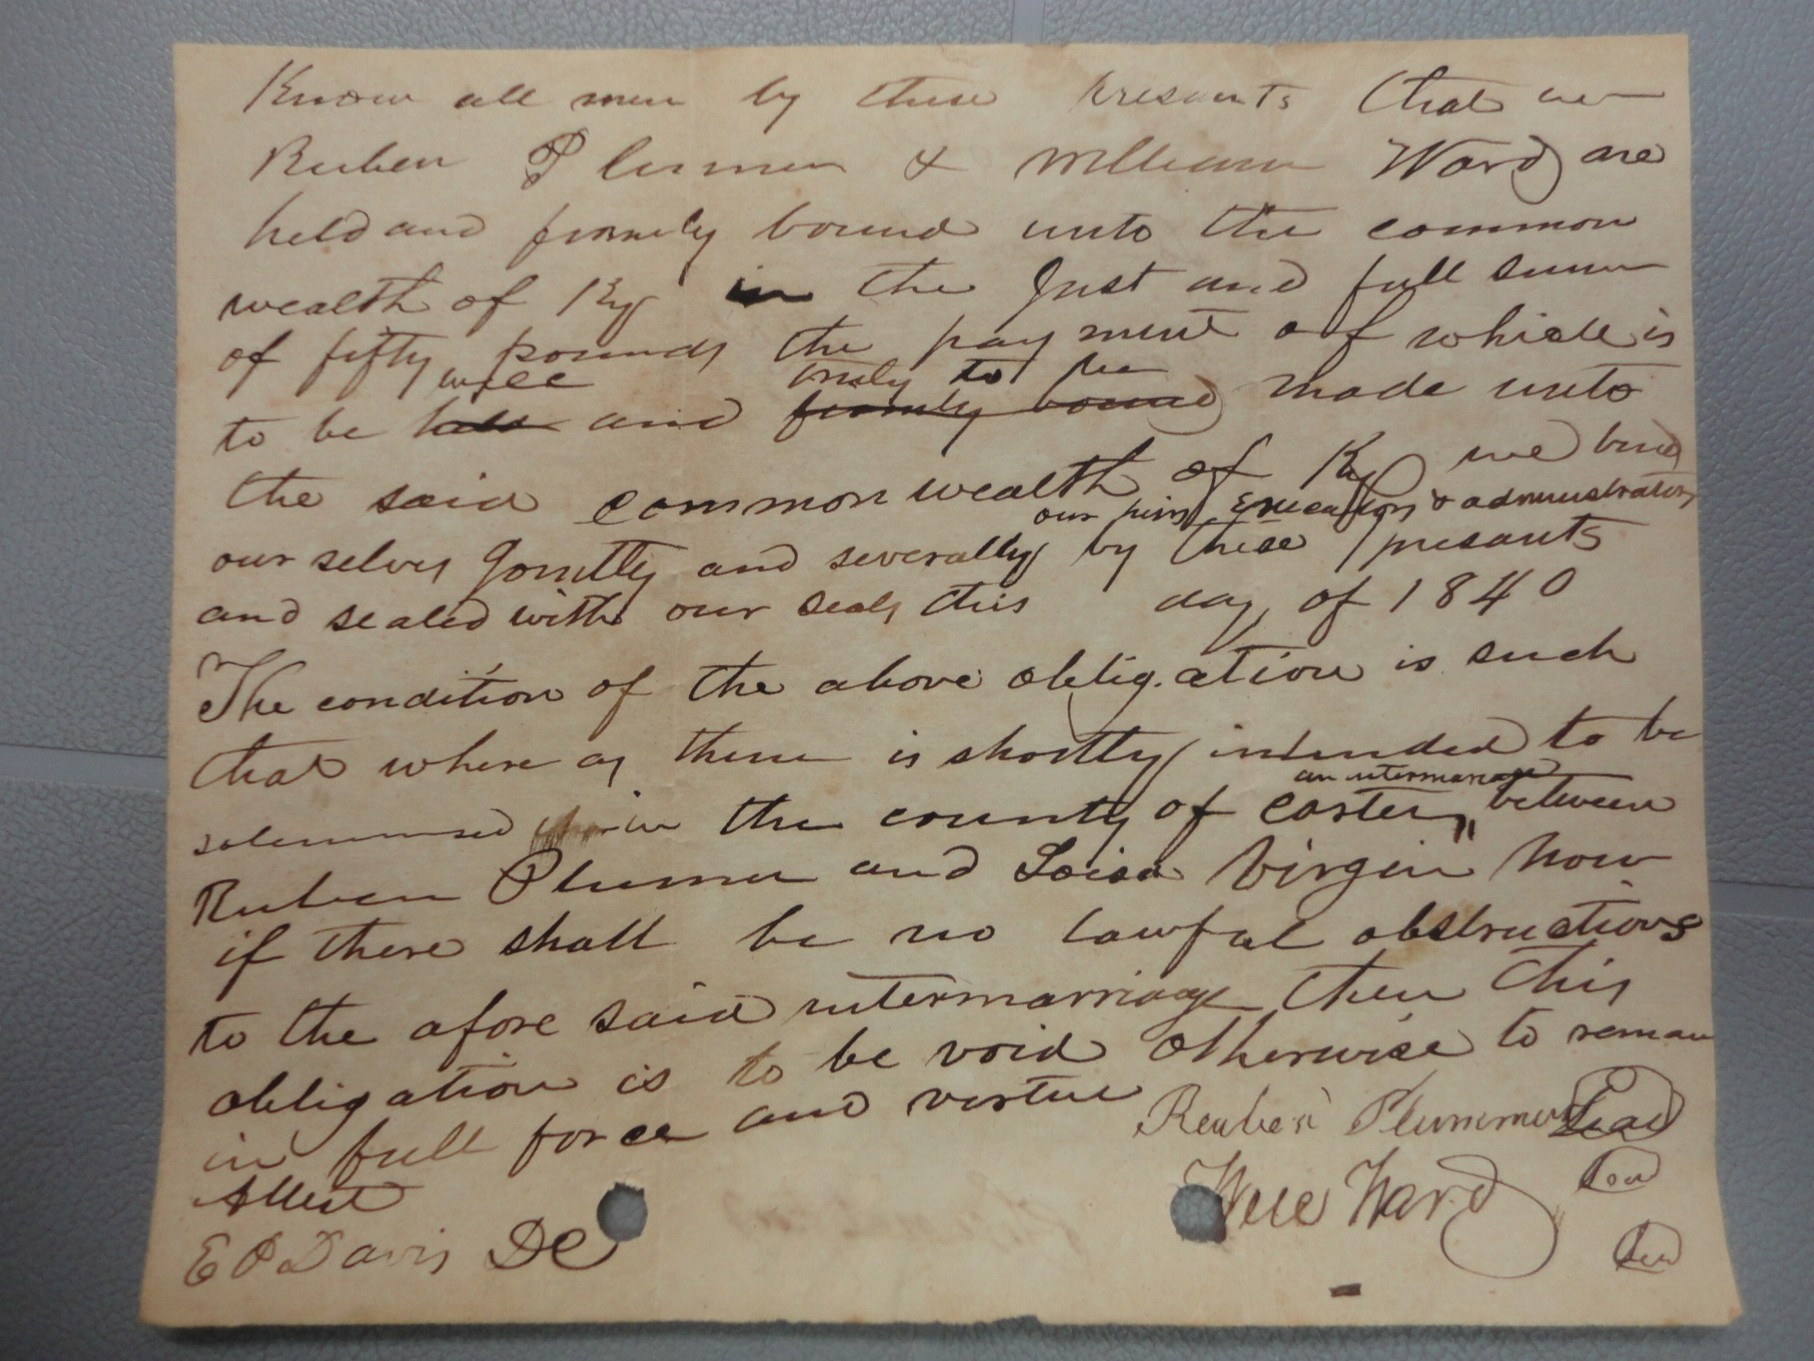 Know all men by these presants that we
Reuben Plummer & William Ward are
held and firmely bound unto the common
wealth of Ky in the Just and full summ
of fifty pounds the payment of which is
well truly to be
to be held and firmly bound made unto
the said commonwealth of Ky we bind
our heirs Executors & administrators
our selves Jointly and severally by these presants
and sealed with our seals this day of 1840
The condition of the above obligation is such
that where as there is shortly intended to be
an intermarriage
solemnised in the county of carter between
Reuben Plumer and Loisa Virgin now
if there shall be no lawful obstructions
to the afore said intermarriage then this
obligation is to be void otherwise to remain
in full force and virtue
Reuben Plummer Seal
Attest
Will Ward Seal
E P Davis DC
Seal